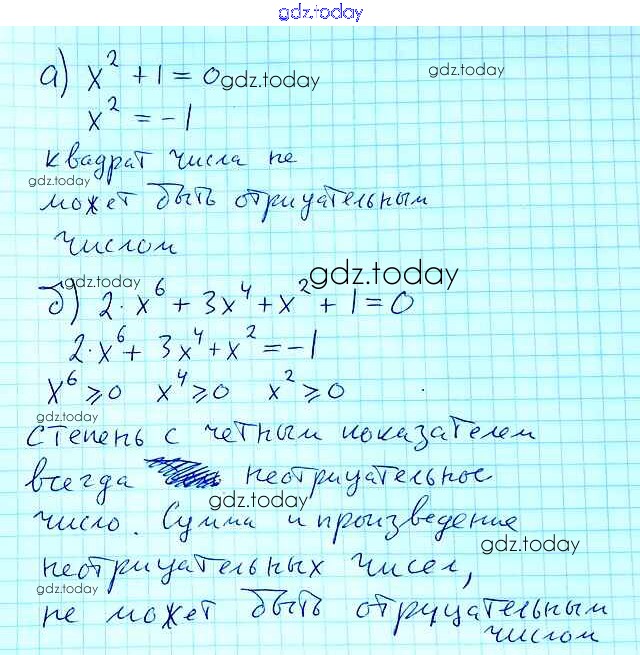 gdz.today
а) x² + 1 = 0 gdz.today gdz.today
x² = -1
квадрат числа не
gdz.today
может быть отрицательным
числом
gdz.today gdz.today
б) 2·x⁶ + 3x⁴ + x² + 1 = 0
2·x⁶ + 3x⁴ + x² = -1
x⁶ ⩾ 0 x⁴ ⩾ 0 x² ⩾ 0
gdz.today
степень с четным показателем
всегда неотрицательное
gdz.today
число. Сумма и произведение
gdz.today
неотрицательных чисел,
gdz.today
не может быть отрицательным
числом